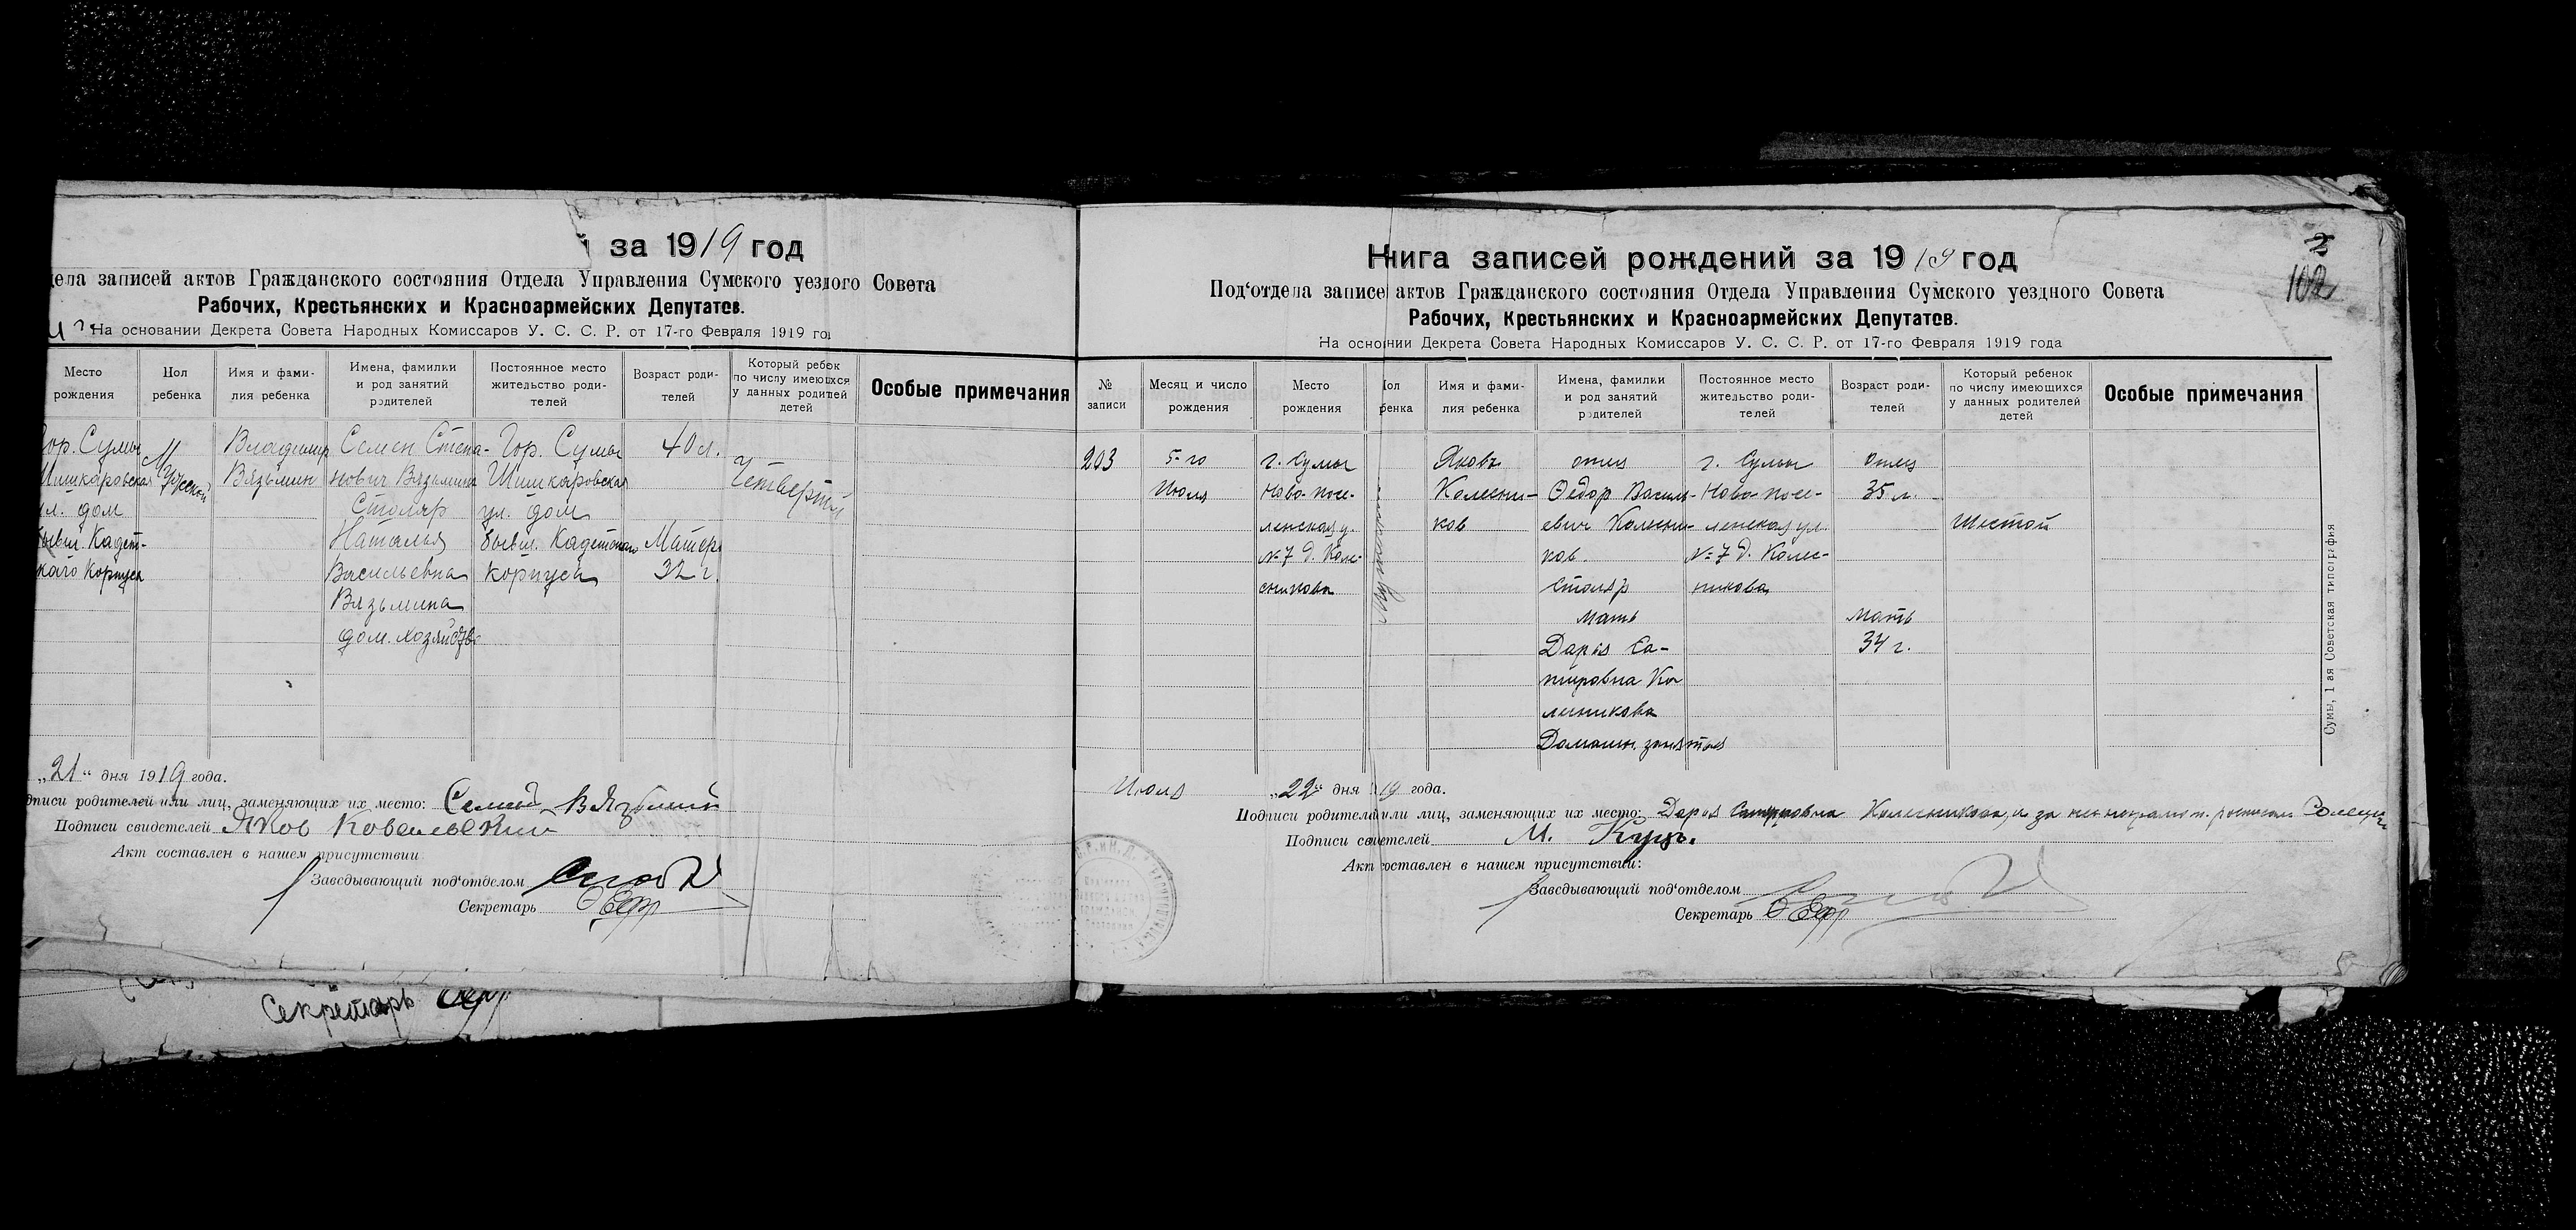 за 1919 год
записей актов Гражданского состояния Отдела Управления Сумского уездного Совета
Рабочих, Крестьянских и Красноармейских Депутатов.
На основании Декрета Совета Народных Комиссаров У. С. С. Р. от 17-го Февраля 1919 го
Место рождения
Пол ребенка
Имя и фами-
лия ребенка
Имена, фамилии
и род занятий
родителей
Постоянное место
жительство роди-
телей
Возраст роди-
телей
Который ребенок
по числу имеющихся
у данных родителей
детей
Особые примечания
гор. Сумы
Шишкаровская
ул. дом
бывш. Кадет-
ского Корпуса
Мужской
Владимир
Вязьмин
Семен Степа-
нович Вязьмин
Столяр
Наталья
Васильевна
Вязьмина
дом. хозяйство
Гор. Сумы
Шишкаровская
ул. дом
бывш. Кадетского
корпуса
40 л.
Матер.
32 г.
Четвертый
„21“ дня 1919 года.
подписи родителей или лиц, заменяющих их место: Семен Вязьмин
Подписи свидетелей Яков Ковалевский
Акт составлен в нашем присутствии
Заведывающий под'отделом
Секретарь
Секретарь
2
102
Книга записей рождений за 1919 год
Под'отдела записей актов Гражданского состояния Отдела Управления Сумского уездного Совета
Рабочих, Крестьянских и Красноармейских Депутатов.
На основании Декрета Совета Народных Комиссаров У. С. С. Р. от 17-го Февраля 1919 года
№
записи
Месяц и число
рождения
Место
рождения
Пол
ребенка
Имя и фами-
лия ребенка
Имена, фамилии
и род занятий
родителей
Постоянное место
жительство роди-
телей
Возраст роди-
телей
Который ребенок
по числу имеющихся
у данных родителей
детей
Особые примечания
203
5-го
Июля
г. Сумы
Ново-посе-
ленская у.
№ 7 д. Коле-
сникова
Яковъ
Колесни-
ков
отец
Федор Василь-
евич Колесни-
ков.
столяр
мать
Дарья
Ко
лесникова
Домашн. занятия
г. Сумы
Ново-посе-
ленская ул.
№ 7 д. Колес-
никова
отец
35 л.
мать
34 г.
Шестой
Июля „22“ дня 1919 года.
Подписи родителей или лиц, заменяющих их место: Дарья Колесникова, а за
Подписи свидетелей М. Куц.
Акт составлен в нашем присутствии:
Заведывающий под'отделом
Секретарь
Сумы, 1 ая Советская типография